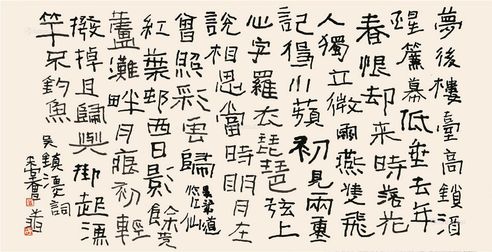 夢後樓臺高鎖酒
醒簾幕低垂去年
春恨却来時落花
人獨立微雨燕雙飛
記得小蘋初見兩重
心字羅衣琵琶弦上
說相思當時明月在
曾照彩雲歸
晏幾道
临江仙
紅葉邨西日影餘黃
蘆灘畔月痕初輕
撥掉且歸與掛起漁
竿不釣魚
吴鎮漁詞